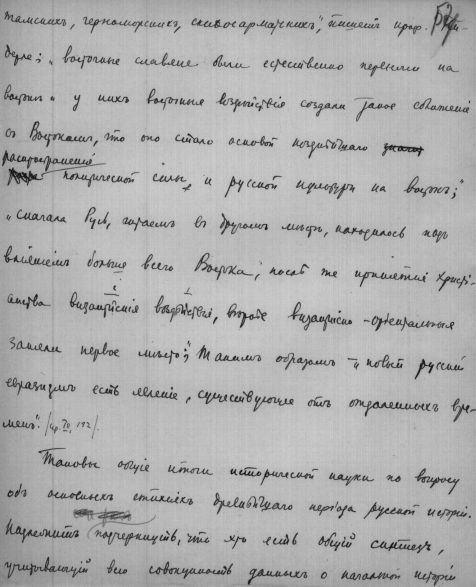 тамскихъ, черноморскихъ, скиѳосарматскихъ", пишетъ проф.
дерле; „восточные славяне были естественно переняли на
востокъ" у нихъ восточныя воздѣйствія создали такое сближеніе
съ Востокомъ, что оно стало основой позднѣйшаго
распространенія
политической силы и русской культуры на востокъ;"
„сначала Русь, читаемъ въ другомъ мѣстѣ, находилась подъ
вліяніемъ больше всего Востока, послѣ же принятія христі-
анства византійскія воздѣйствія, вѣрнѣе византійско-орьентальныя
заняли первое мѣсто"; Такимъ образомъ — „новый русскій
евразизмъ есть явленіе, существующее отъ отдаленныхъ вре-
менъ".
Таковы общіе итоги исторической науки по вопросу
объ основныхъ стихіяхъ древнѣйшаго періода русской исторіи.
Надлежитъ подчеркнуть, что это есть общій синтезъ,
учитывающій всю совокупность данныхъ о начальной исторіи